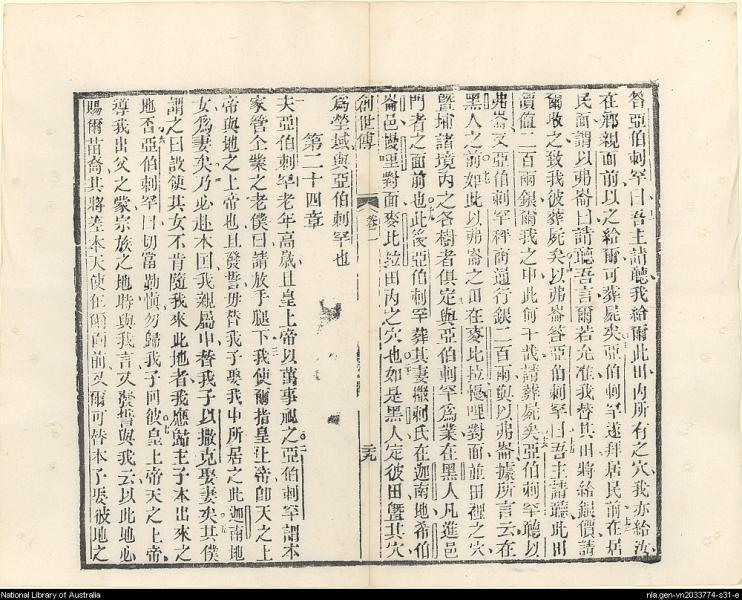 答亞伯剌罕曰吾主請聽我給爾此田內所有之穴我亦給汝
在鄉親面前以之給爾可葬屍矣亞伯剌罕遂拜居民前在居
民面謂以弗崙曰請聽吾言爾若允准我替其田將給銀價請
爾收之致我彼葬屍矣以弗崙答亞伯剌罕曰吾主請聽此田
價值二百兩銀爾我之中此何干哉請葬屍矣亞伯剌罕聽以
弗崙又亞伯剌罕秤商通行銀二百兩與以弗崙據所言云在
黑人之前如此以弗崙之田在麥比拉幔哩對面並田裡之穴
暨埔諸境內之各樹者俱定與亞伯剌罕為業在黑人凡進邑
門者之面前也此後亞伯剌罕葬其妻撒剌氏在迦南地希伯
崙邑幔哩對面麥比拉田內之穴也如是黑人定彼田暨其穴
創世傳
卷一
二十九
為塋域與亞伯剌罕也
第二十四章
夫亞伯剌罕老年高歲且皇上帝以萬事祝之亞伯剌罕謂本
家管全業之老僕曰請放手腿下我使爾指皇上帝即天之上
帝與地之上帝也且發誓毋替我子娶我中所居之此迦南地
女為妻矣乃必赴本囘我親屬中替我子以撒克娶妻矣其僕
謂之曰設使其女不肯隨我來此地者我應攜主子本出來之
地否亞伯剌罕曰切當勤慎勿歸我子囘彼皇上帝天之上帝
導我出父之家宗族之地時與我言又發誓與我云以此地必
賜爾苗裔其將差本天使在爾面前又爾可替本子娶彼地之